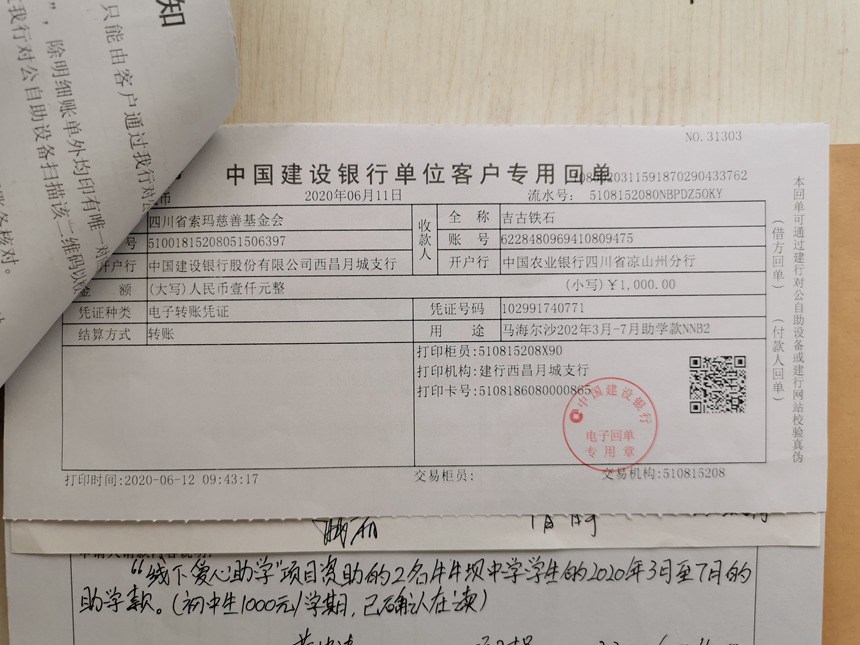 知
只能由客户通过我行对
”，除明细账单外均印有唯一
我行对公自助设备扫描该二维码以
核对。
NO.31303
中国建设银行单位客户专用回单
币
2020年06月11日
流水号： 5108152080NBPDZ5OKY
四川省索玛慈善基金会
收款人
全 称
吉古铁石
号
51001815208051506397
账 号
6228480969410809475
开户行
中国建设银行股份有限公司西昌月城支行
开户行
中国农业银行四川省凉山州分行
金 额
(大写)人民币壹仟元整
(小写)￥1,000.00
凭证种类
电子转账凭证
凭证号码
102991740771
结算方式
转账
用 途
马海尔沙202年3月-7月助学款NNB2
打印柜员:510815208X90
打印机构:建行西昌月城支行
打印卡号:5108186080000865
中国建设银行
电子回单
专用章
打印时间:2020-06-12 09:43:17
交易柜员:
交易机构:510815208
(借方回单)
(付款人回单)
本回单可通过建行对公自助设备或建行网站校验真伪
“线下爱心助学”项目资助的2名牛牛坝中学学生的2020年3月至7月的
助学款。(初中生1000元/学期，已确认在读)